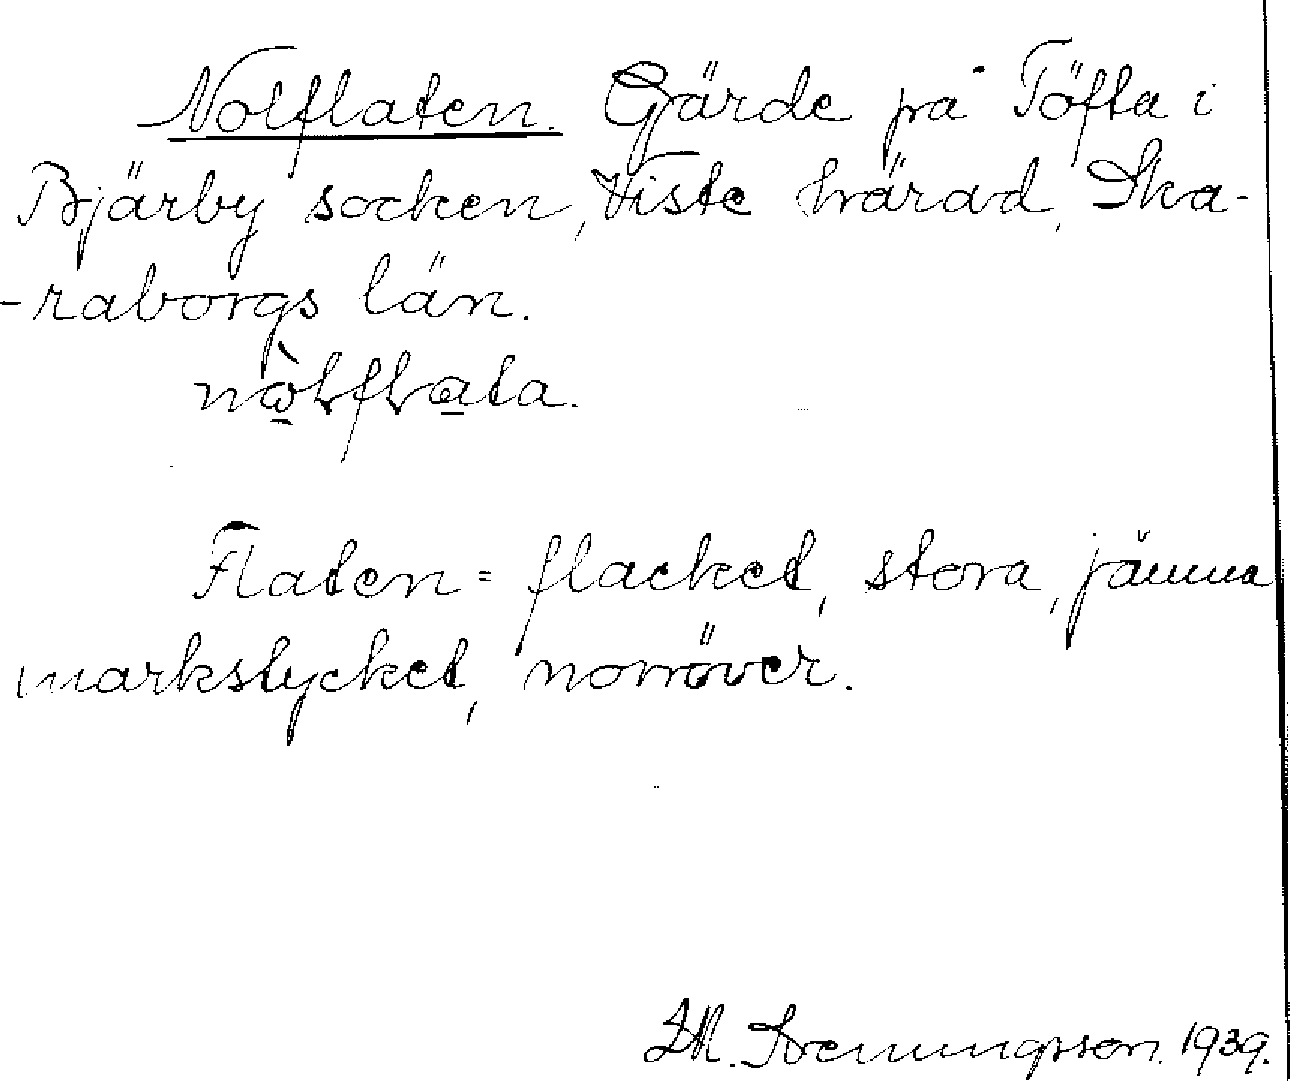 Nolflaten. Gärde på Töfta i
Bjärby socken, Viste härad, Ska-
-raborgs län.
nòlflata.
Flaten = flacket, stora, jämna
markstycket, norröver.
1939.